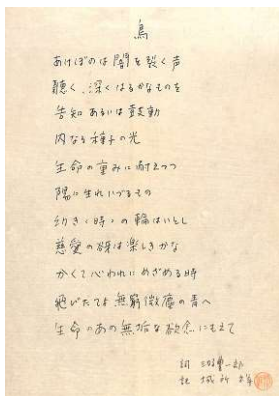 鳥
あけぼのは闇を裂く声
聴く、深くはるかなものを
告知あるいは鼓動
内なる種子の光
生命の重みに耐えつつ
陽に生れいづるもの
幼き〈時〉の輪はいとし
慈愛の絆は楽しきかな
かくて心われにめざめる時
飛びたて 無窮微塵の青へ
生命のあの無垢な欲念にもえて
詞
記